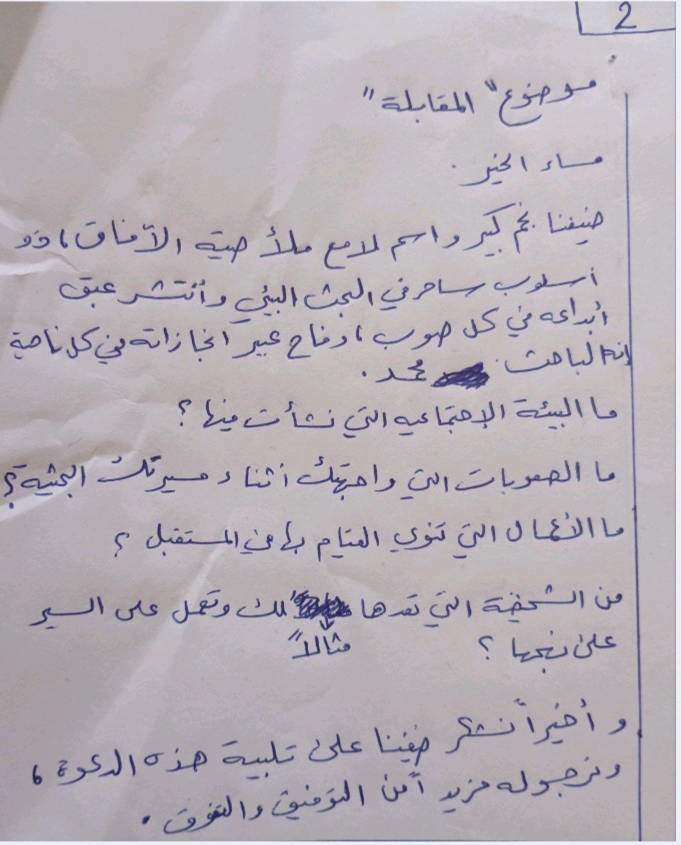 2
موضوع "المقابلة"
مساء الخير.
ضيفنا نجم كبير واسم لامع ملأ صيته الآفاق، ذو
أسلوب ساحر في البحث البيئي وأنتشر عبق
أبداعه في كل صوب، وفاح عبير انجازاته في كل ناحية
إنه الباحث محمد.
ما البيئة الإجتماعيه التي نشأت فيها؟
ما الصعوبات التي واجهتك أثناء مسيرتك البحثية؟
ما الأعمال التي تنوي القيام بها في المستقبل؟
من الشخصية التي تعدها مثالاً لك وتعمل على السير
على نهجها؟
وأخيراً نشكر ضيفنا على تلبية هذه الدعوة،
ونرجو له مزيد أمن التوفيق والتفوق.